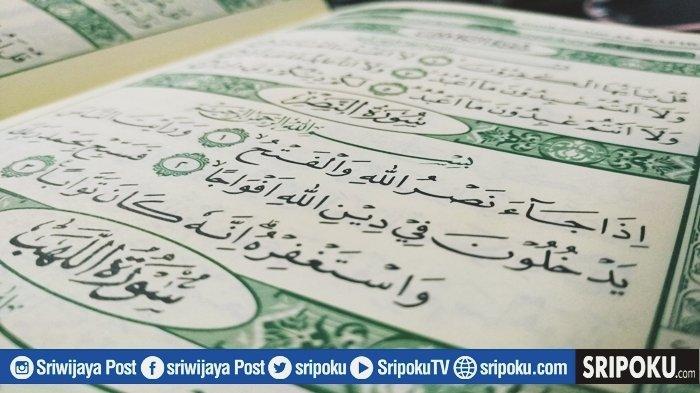 قُلْ يٰٓاَيُّهَا الْكٰفِرُوْنَ ۙ ١
وَلَآ اَنْتُمْ عٰبِدُوْنَ مَآ اَعْبُدُ ۚ ٣
وَلَآ اَنْتُمْ عٰبِدُوْنَ مَآ اَعْبُدُ ۗ ٥
سُوْرَةُ النَّصْرِ
بِسْمِ اللّٰهِ الرَّحْمٰنِ الرَّحِيْمِ
اِذَا جَاۤءَ نَصْرُ اللّٰهِ وَالْفَتْحُۙ ١ وَرَاَيْتَ النَّاسَ
يَدْخُلُوْنَ فِيْ دِيْنِ اللّٰهِ اَفْوَاجًاۙ ٢ فَسَبِّحْ بِحَمْدِ رَبِّكَ
وَاسْتَغْفِرْهُۗ اِنَّهٗ كَانَ تَوَّابًا
سُوْرَةُ اللَّهَبِ
Sriwijaya Post sriwijaya Post sripoku SripokuTV sripoku.com SRIPOKU.com